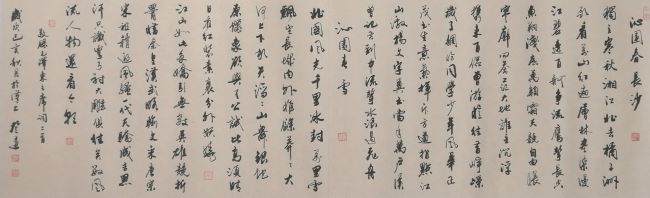 沁园春长沙
独立寒秋湘江北去橘子洲
头看万山红遍层林尽染漫
江碧透百舸争流鹰击长空
鱼翔浅底万类霜天竞自由怅
寥廓问苍茫大地谁主沉浮
携来百侣曾游忆往昔峥嵘
岁月稠恰同学少年风华正
茂书生意气挥斥方遒指点江
山激扬文字粪土当年万户侯
曾记否到中流击水浪遏飞舟
沁园春雪
北国风光千里冰封万里雪
飘望长城内外惟余莽莽大
河上下顿失滔滔山舞银蛇
原驰蜡象欲与天公试比高须晴
日看红装素裹分外妖娆
江山如此多娇引无数英雄竞折
腰惜秦皇汉武略输文采唐宗
宋祖稍逊风骚一代天骄成吉思
汗只识弯弓射大雕俱往矣数风
流人物还看今朝
毛泽东主席词二首
己亥秋月